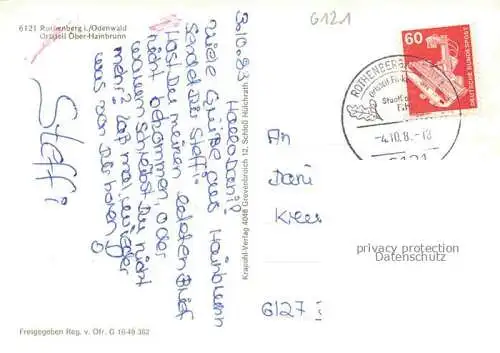 6121 Rothenberg i./Odenwald
Ortsteil Ober-Hainbrunn
3.10.83
Hallo Dani!
Viele Grüße aus Hainbrunn
sendet Dir Steffi.
Hast Du meinen letzten Brief
nicht bekommen, oder
warum schreibst Du nicht
mehr? Laß mal wieder
was von Dir hören
Steffi
Krapohl-Verlag 4048 Grevenbroich 12, Schloß Hülchrath
Freigegeben Reg. v. Ofr. G 1649 362
6121
ROTHENBERG
-4.10.8.-18
6121
60
DEUTSCHE BUNDESPOST
An
Dani
6127
privacy protection
Datenschutz